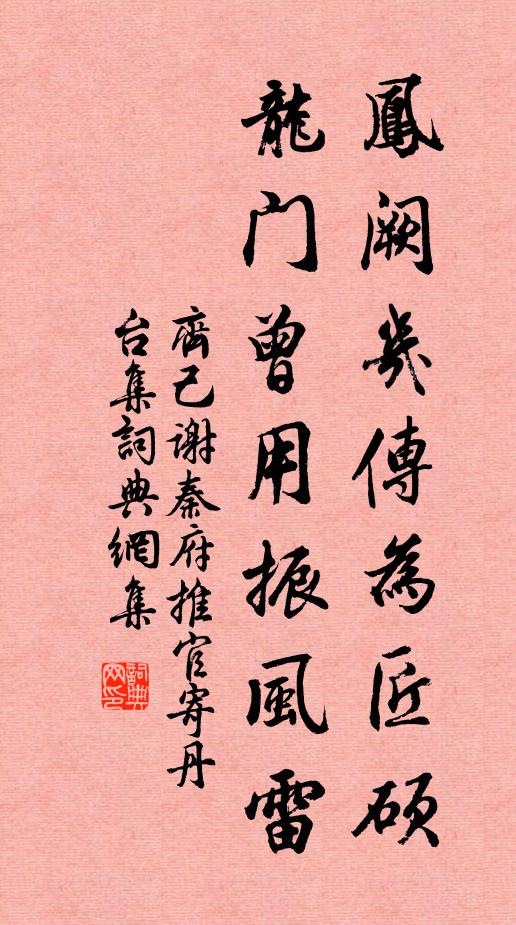 鳳闕幾傳為匠碩
龍門曾用振風雷
齊己謝秦府推官寄丹
台集詞典網集
詞典
网印